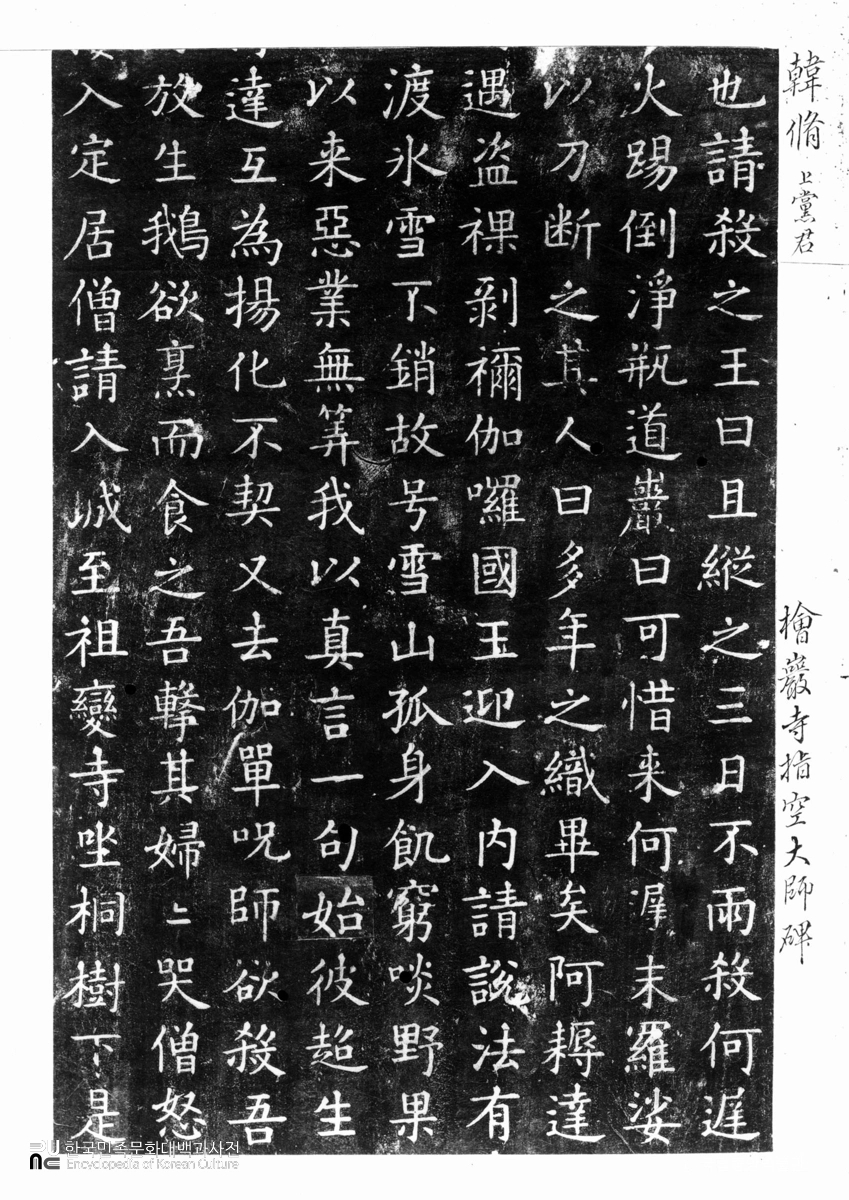 韓脩 上黨君
檜巖寺指空大師碑
也請殺之王曰且縱之三日不雨殺何遅
火踢倒淨瓶道巖曰可惜来何遅末羅娑
以刀断之其人曰多年之織畢矣阿耨達
遇盗祼剥禰伽囉國王迎入内請說法有
渡氷雪不銷故号雪山孤身飢窮啖野果
以来惡業無筭我以真言一句始彼超生
達互為揚化不契又去伽單呪師欲殺吾
放生鵝欲烹而食之吾擊其婦〻哭僧怒
入定居僧請入城至祖變寺坐桐樹下是
한국민족문화대백과사전
Encyclopedia of Korean Culture